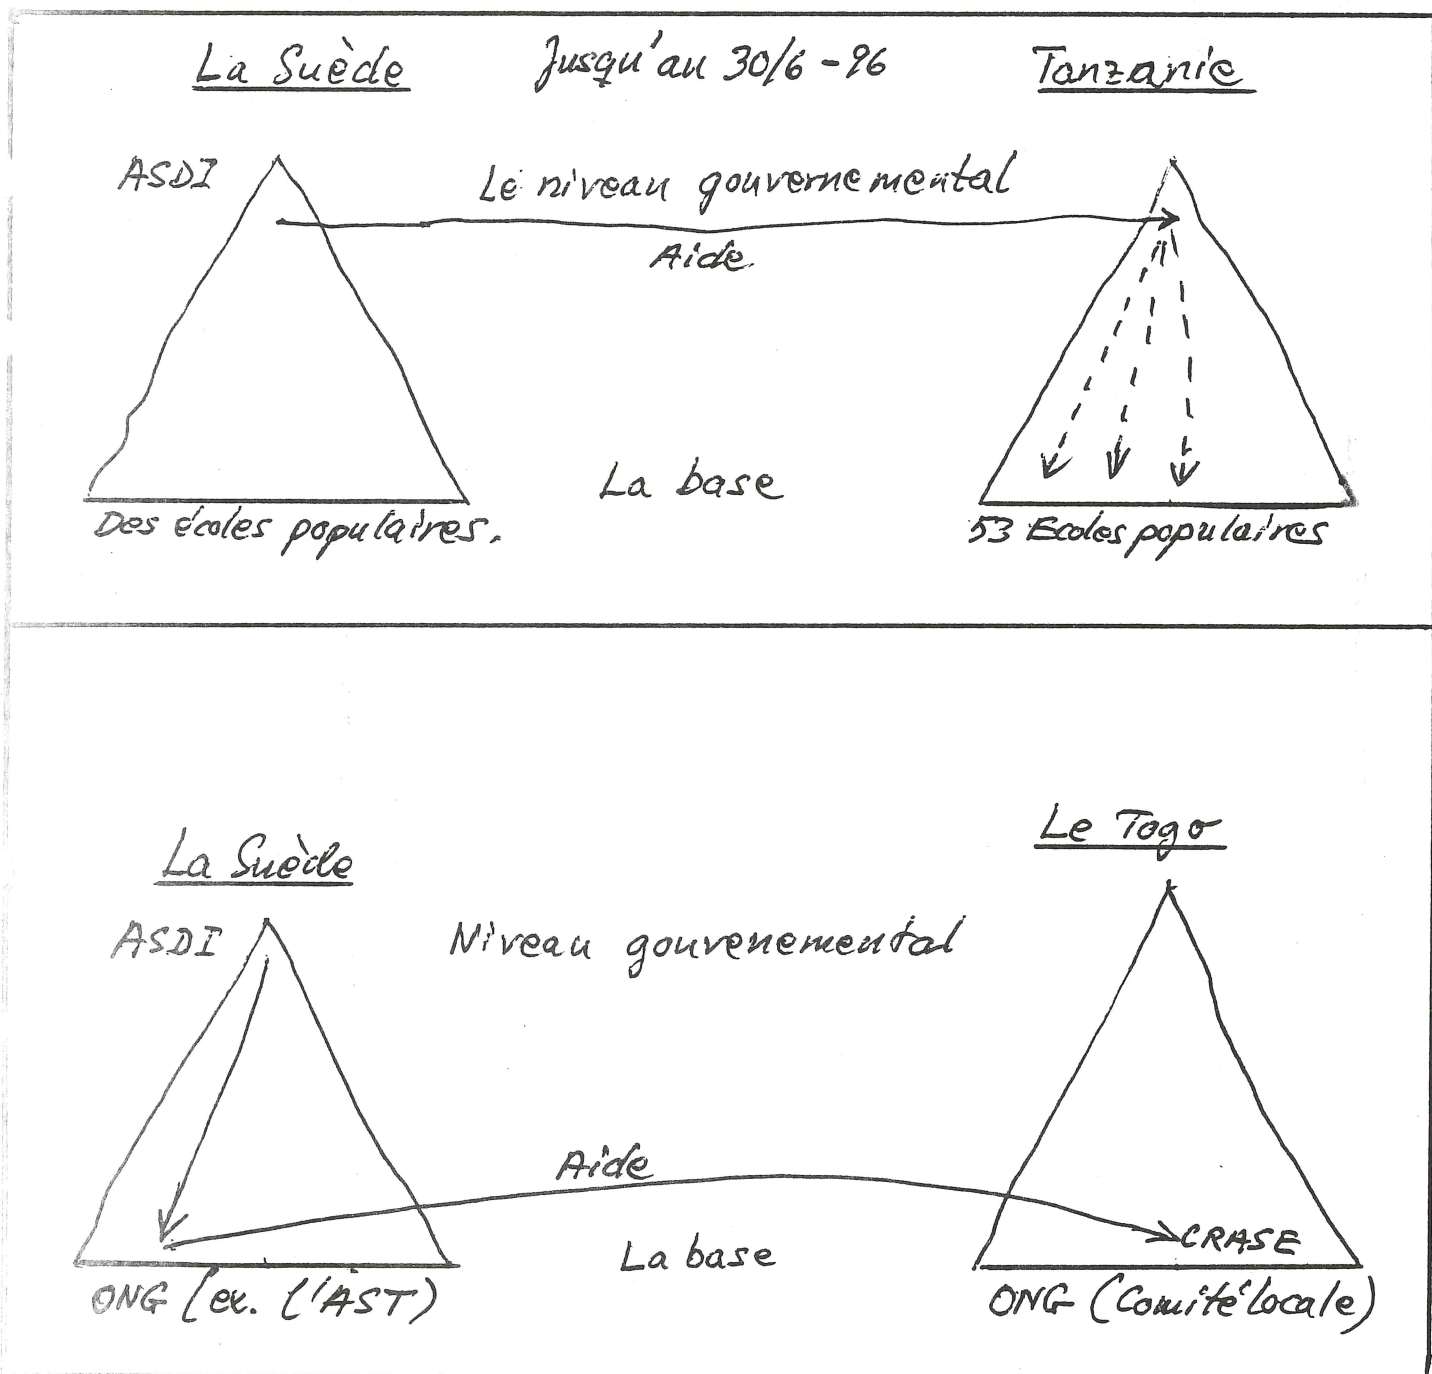 La Suède
Jusqu'au 30/6-96
Tanzanie
ASDI
Le niveau gouvernemental
Aide
La base
Des écoles populaires.
53 Ecoles populaires
La Suède
Le Togo
ASDI
Niveau gouvenemental
Aide
La base
CRASE
ONG (ex. l'ÅST)
ONG (Comité locale)